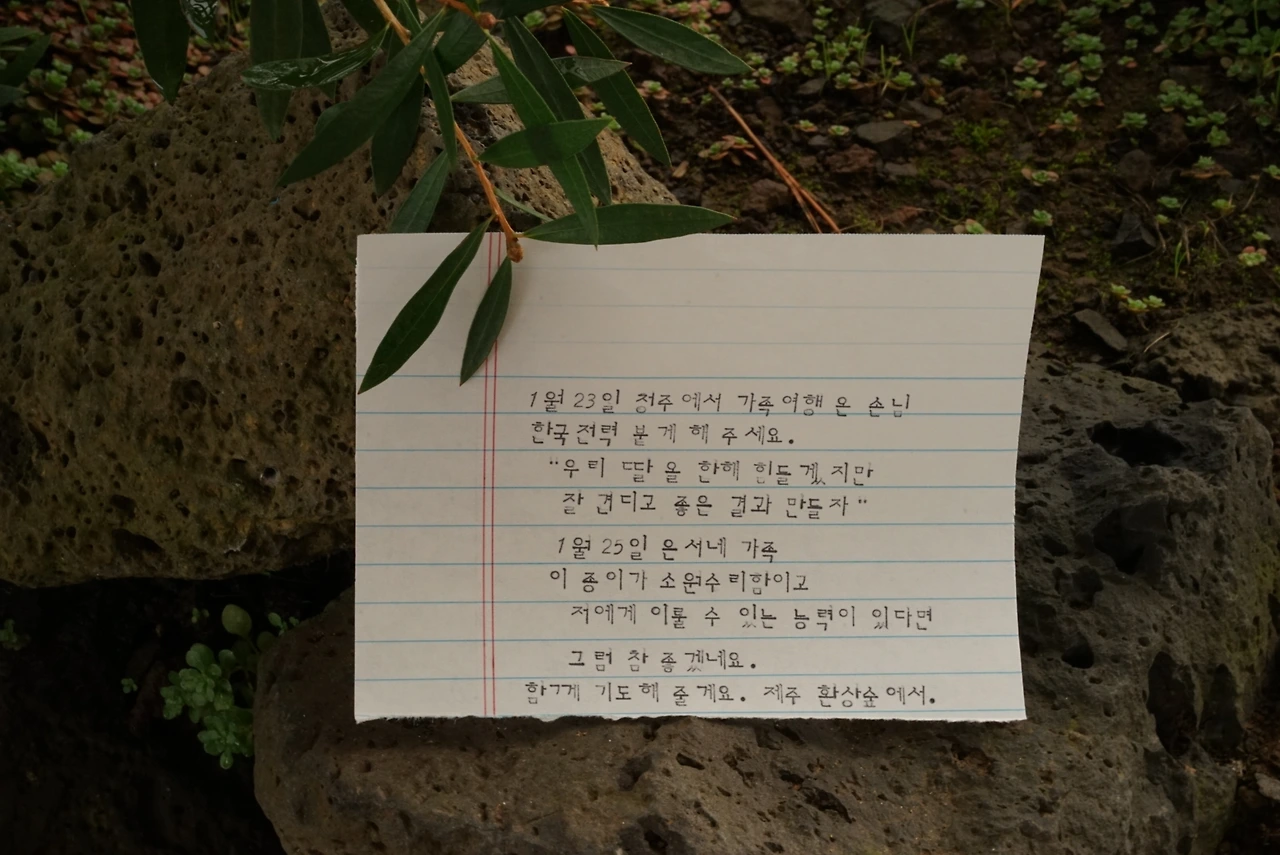 1월 23일 청주에서 가족여행 온 손님
한국전력 붙게 해 주세요.
"우리 딸 올 한해 힘들겠지만
잘 견디고 좋은 결과 만들자"
1월 25일 은서네 가족
이 종이가 소원수리함이고
저에게 이룰 수 있는 능력이 있다면
그럼 참 좋겠네요.
함께 기도해 줄게요. 제주 환상숲에서.